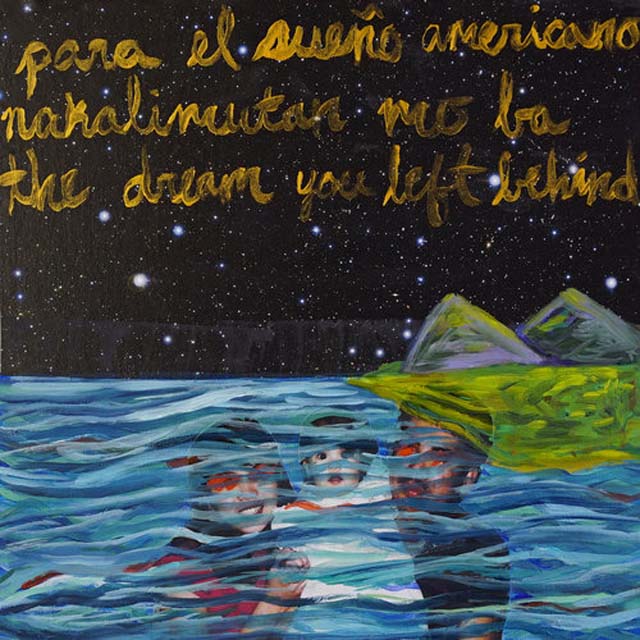 para el sueño americano
nakalimutan mo ba
the dream you left behind